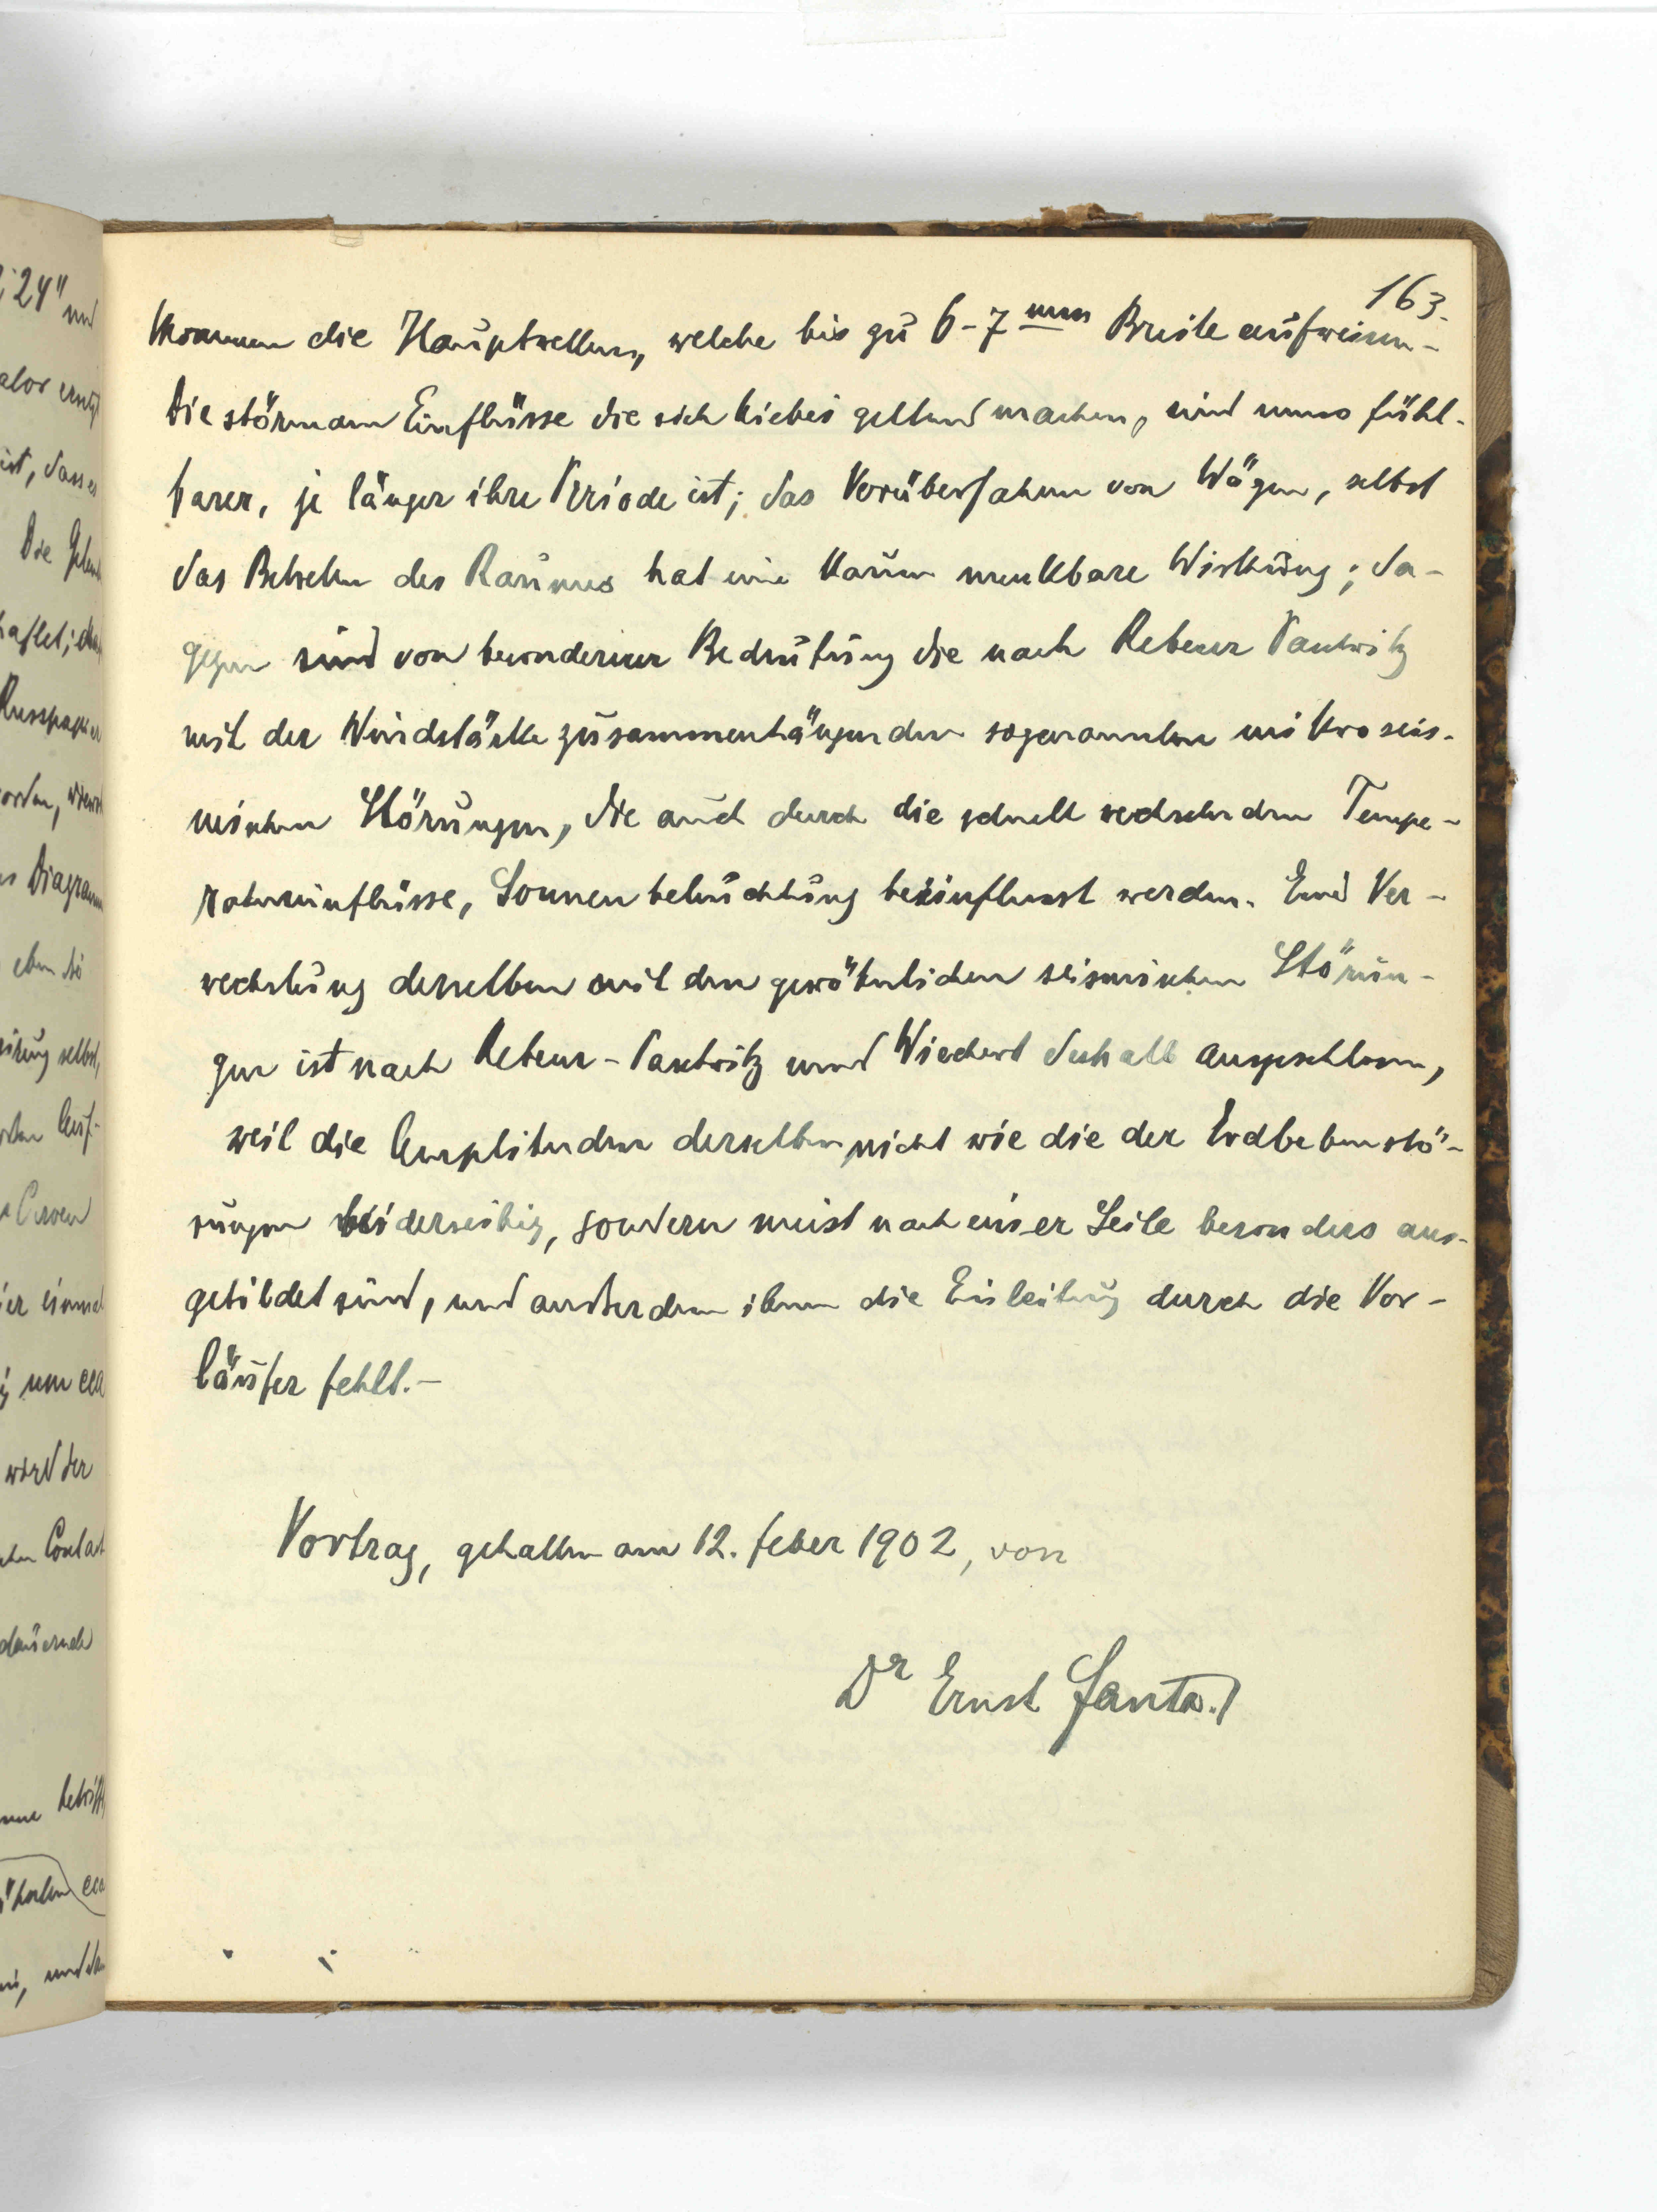 163.
kommen die Hauptwellen, welche bis zu 6-7 mm Breite aufweisen.-
Die störenden Einflüsse die sich hiebei geltend machen, sind umso fühl-
barer, je länger ihre Periode ist; das Vorüberfahren von Wägen, selbst
das Betreten des Raumes hat eine kaum merkbare Wirkung; da-
gegen sind von besonderer Bedeutung die nach Rebeur Paschwitz
mit der Windstärke zusammenhängenden sogenannten mikroseis-
mischen Störungen, die auch durch die schnell wechselnden Tempe-
ratureinflüsse, Sonnenbeleuchtung beeinflusst werden. Eine Ver-
wechslung derselben mit den gewöhnlichen seismischen Störun-
gen ist nach Rebeur-Paschwitz und Wiechert deshalb ausgeschlossen,
weil die Amplituden derselben nicht wie die der Erdbebenstö-
rungen beiderseitig, sondern meist nach einer Seite besonders aus-
gebildet sind, und außerdem ihnen die Einleitung durch die Vor-
läufer fehlt.-
Vortrag, gehalten am 12. feber 1902, von
Dr Ernst Janta.
24" und
ist, dass es
Die
Russpapier
Diagramm
eben so
selbst,
Auf-
Curven
einmal
um
wird der
Contact
dauernde